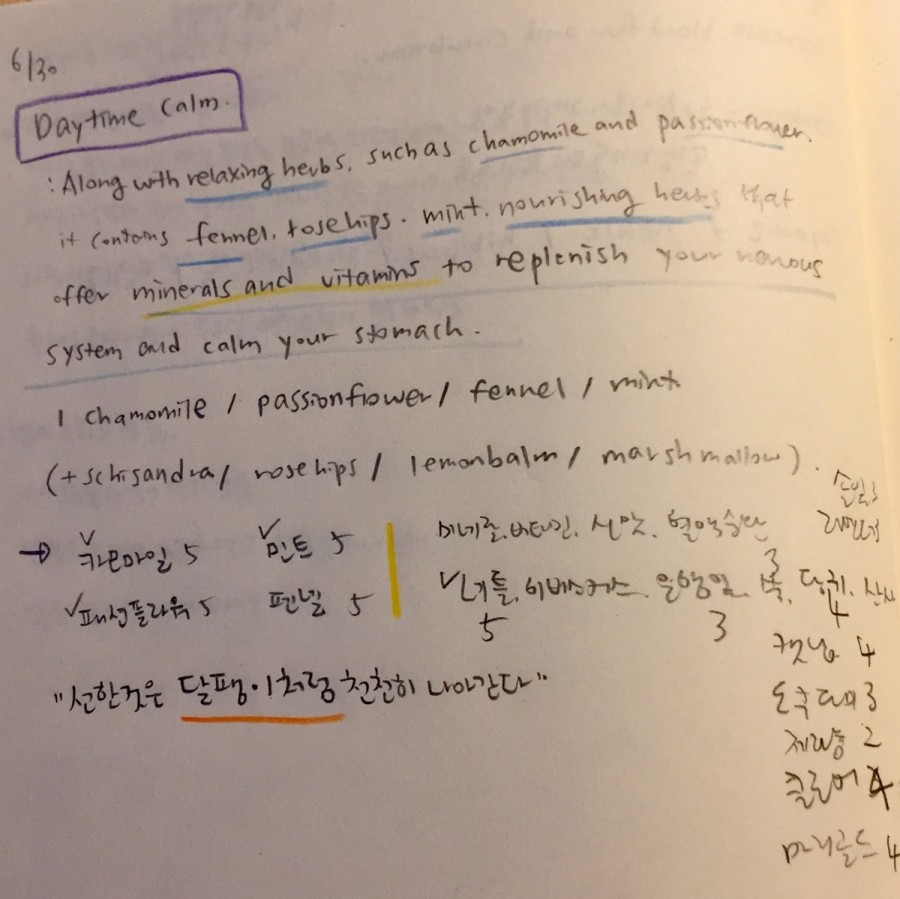 6/30
Daytime Calm.
: Along with relaxing herbs, such as chamomile and passionflower.
it contains fennel. rosehips. mint. nourishing herbs that
offer minerals and vitamins to replenish your nervous
system and calm your stomach.
1 chamomile / passionflower / fennel / mint
(+ schisandra / rosehips / lemonbalm / marshmallow).
→ 캬모마일 5 민트 5
패션플라워 5 펜넬 5
미네랄, 비타민, 신맛, 혈액순환
네틀, 히비스커스, 은행잎, 쑥, 당귀, 산사
5 3 3 4
캣닢 4
"선한것은 달팽이처럼 천천히 나아간다"
3
2
클로버 4
마리골드 4